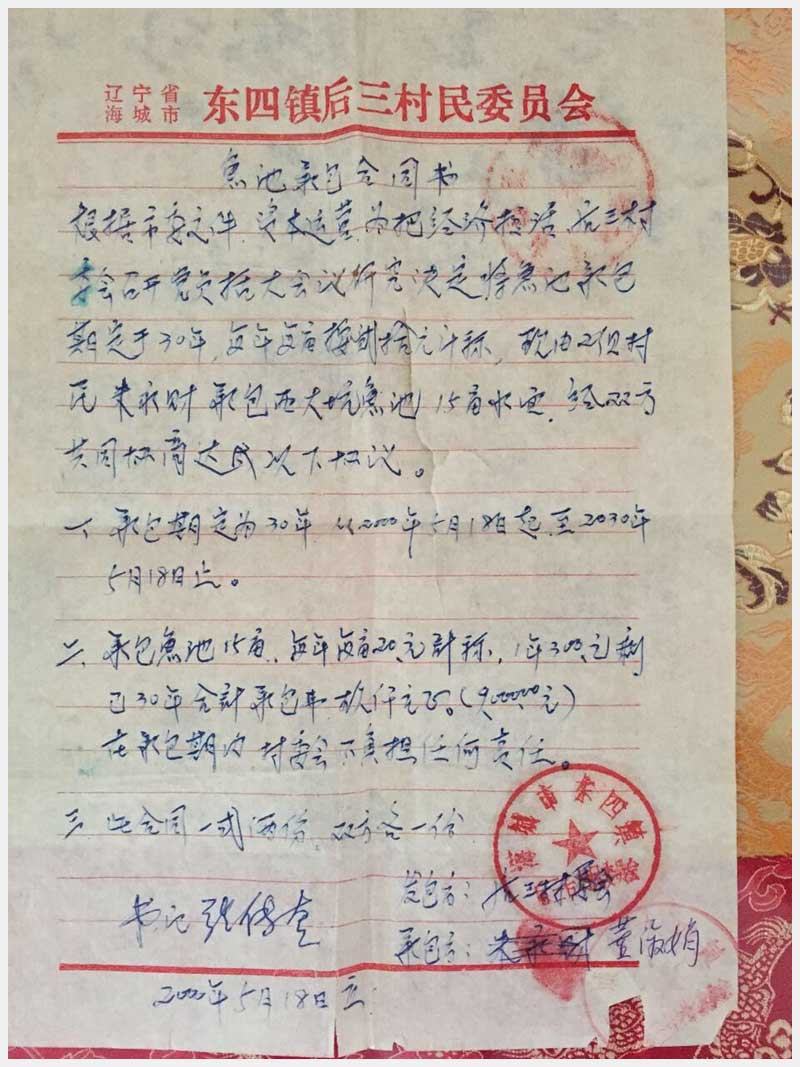 辽宁省
海城市
东四镇后三村民委员会
鱼池承包合同书
根据市委文件,资本运营,为把经济搞活,后三村
委会召开党员扩大会议研究决定将鱼池承包
期定于30年,每年每亩按贰拾元计称,现由2组村
民朱永财承包西大坑鱼池15亩水面,经双方
共同协商达成以下协议。
一、承包期定为30年 从2000年5月18日起至2030年
5月18日止。
二、承包鱼池15亩,每年每亩20元計称,1年300元
30年合計承包 玖仟元正。(9000.00元)
在承包期内,村委会不负担任何责任。
三、此合同一式两份,双方各一份
海城市东四镇
发包方:后三村委会
书记
承包方:朱永财 董淑娟
2000年5月18日立